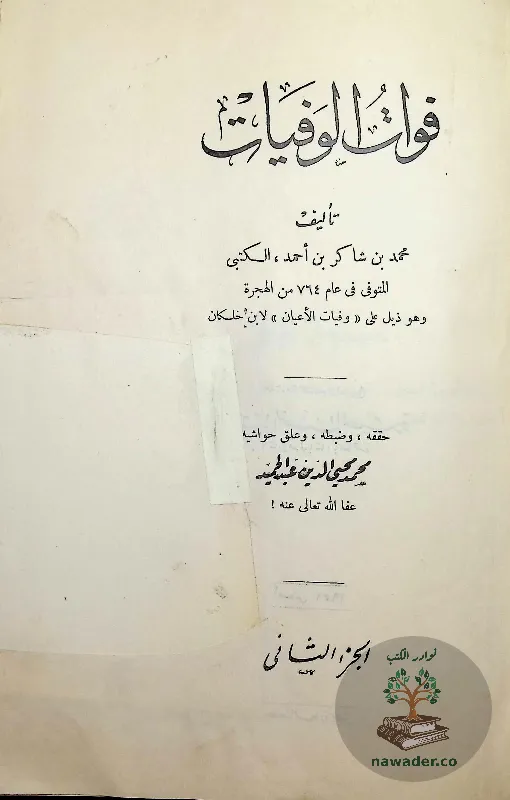 فوات الوفيات
تأليف
محمد بن شاكر بن أحمد ، الكتبي
المتوفى فى عام ٧٦٤ من الهجرة
وهو ذيل على « وفيات الأعيان » لابن خلكان
حققه ، وضبطه ، وعلق حواشيه
محمد محيي الدين عبد الحميد
عفا الله تعالى عنه !
الجزء الثانى
نوادر الكتب
nawader.co